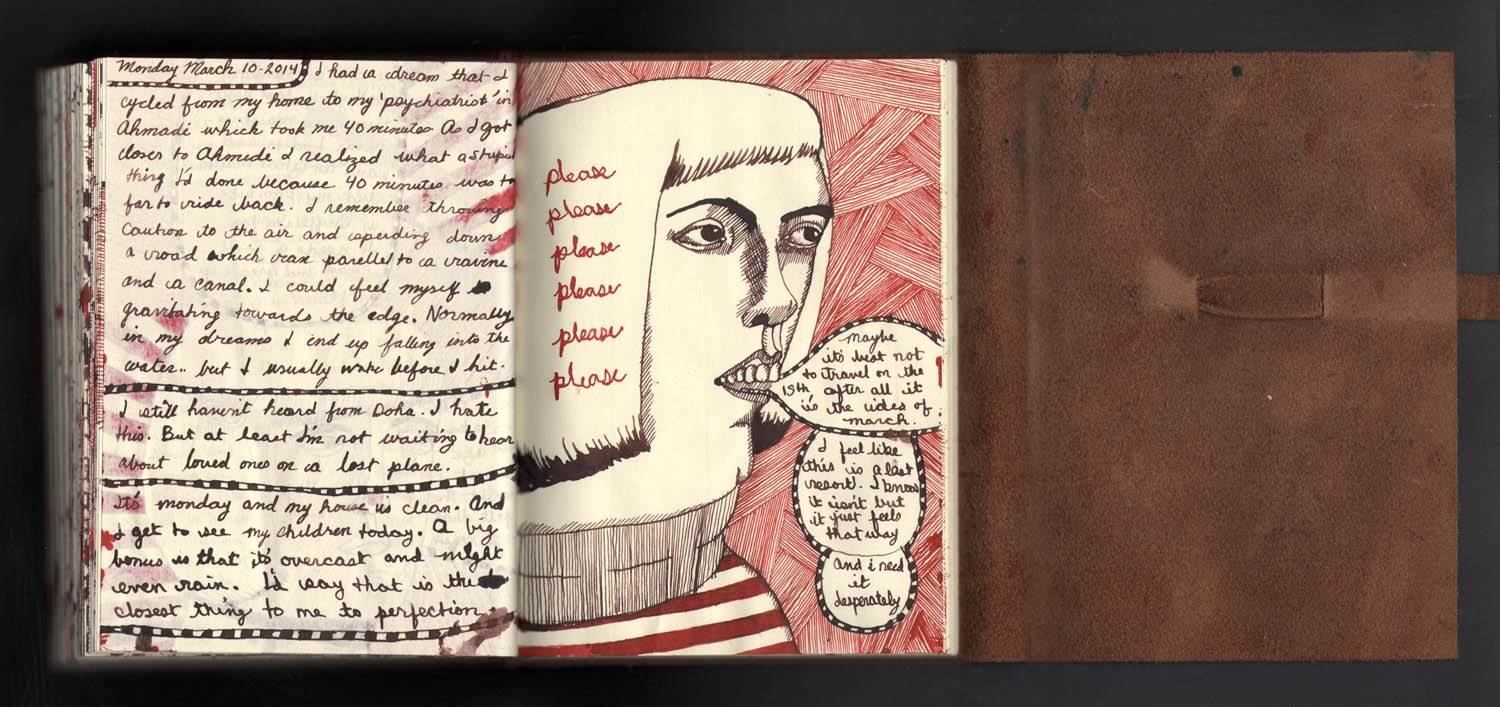 Monday March 10-2014 I had a dream that I
cycled from my home to my 'psychiatrist' in
Ahmadi which took me 40 minutes. As I got
closer to Ahmadi I realized what a stupid
thing I'd done because 40 minutes was to
far to ride back. I remember throwing
caution to the air and speeding down
a road which ran parellel to a ravine
and a canal. I could feel myself
gravitating towards the edge. Normally
in my dreams I end up falling into the
water.. but I usually wake before I hit.
I still haven't heard from Doha. I hate
this. But at least I'm not waiting to hear
about loved ones on a lost plane.
It's monday and my house is clean. And
I get to see my children today. A big
bonus is that it's overcast and might
even rain. I'd say that is the
closest thing to me to perfection.
please
please
please
please
please
please
maybe
it's best not
to travel on the
15th after all it
is the ides of
march.
I feel like
this is a last
resort. I know
it isn't but
it just feels
that way
and i need
it
desperately